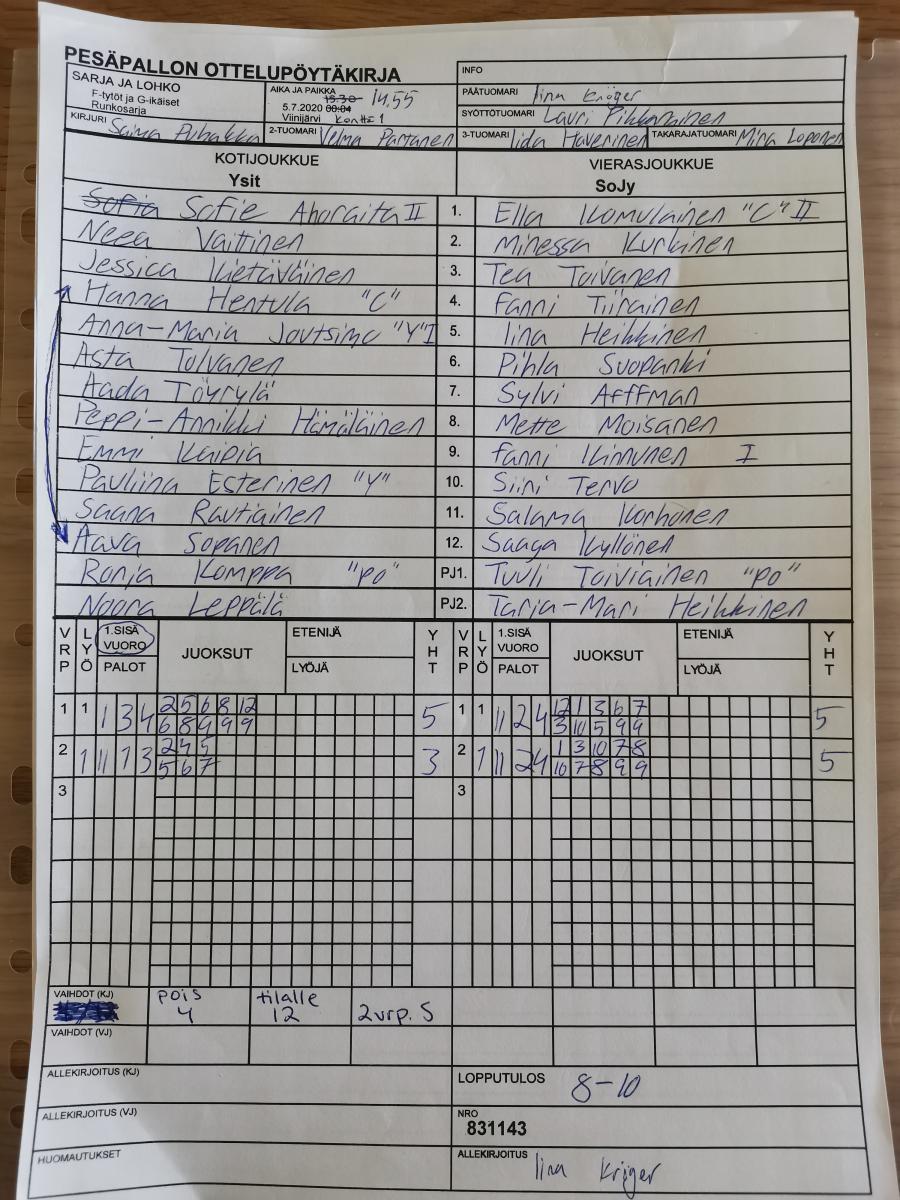 PESÄPALLON OTTELUPÖYTÄKIRJA
SARJA JA LOHKO
F-tytöt ja G-ikäiset
Runkosarja
KIRJURI Saima Puhakka
AIKA JA PAIKKA
15.30 14.55
5.7.2020 00:04
Viinijärvi kenttä 1
2-TUOMARI Velma Partanen
INFO
PÄÄTUOMARI Iina Kröger
SYÖTTÖTUOMARI Lauri Pikkarainen
3-TUOMARI Iida Haverinen TAKARAJATUOMARI Mira Loponen
KOTIJOUKKUE VIERASJOUKKUE
Ysit SoJy
Sofia Sofie Ahoraita II 1. Ella Komulainen "C" II
Neea Vaittinen 2. Minessa Kurkinen
Jessica Kietäväinen 3. Tea Toivanen
Hanna Hentula "C" 4. Fanni Tiirainen
Anna-Maria Joutsimo "Y" I 5. Iina Heikkinen
Asta Tolvanen 6. Pihla Suopanki
Aada Töyrylä 7. Sylvi Arffman
Peppi-Annikki Hämäläinen 8. Mette Moisanen
Emmi Kaipia 9. Fanni Kinnunen I
Pauliina Esterinen "Y" 10. Siini Tervo
Saana Rautiainen 11. Salama Korhonen
Aava Sopanen 12. Saaga Kyllönen
Ronja Komppa "PO" PJ1. Tuuli Toiviainen "PO"
Noora Leppälä PJ2. Tarja-Mari Heikkinen
VRP LYÖ 1.SISÄ VUORO PALOT JUOKSUT ETENIJÄ LYÖJÄ YHT VRP LYÖ 1.SISÄ VUORO PALOT JUOKSUT ETENIJÄ LYÖJÄ YHT
1 1 1 3 4 2 5 6 8 12 5 1 1 11 2 4 12 1 3 6 7 5
6 8 9 9 9 3 10 5 9 9
2 1 11 1 3 2 4 5 3 2 1 11 2 4 1 3 10 7 8 5
5 6 7 10 7 8 9 9
3 3
VAIHDOT (KJ) pois 4 tilalle 12 2vrp. S
VAIHDOT (VJ)
ALLEKIRJOITUS (KJ) LOPPUTULOS 8-10
ALLEKIRJOITUS (VJ) NRO
831143
HUOMAUTUKSET ALLEKIRJOITUS Iina Kröger